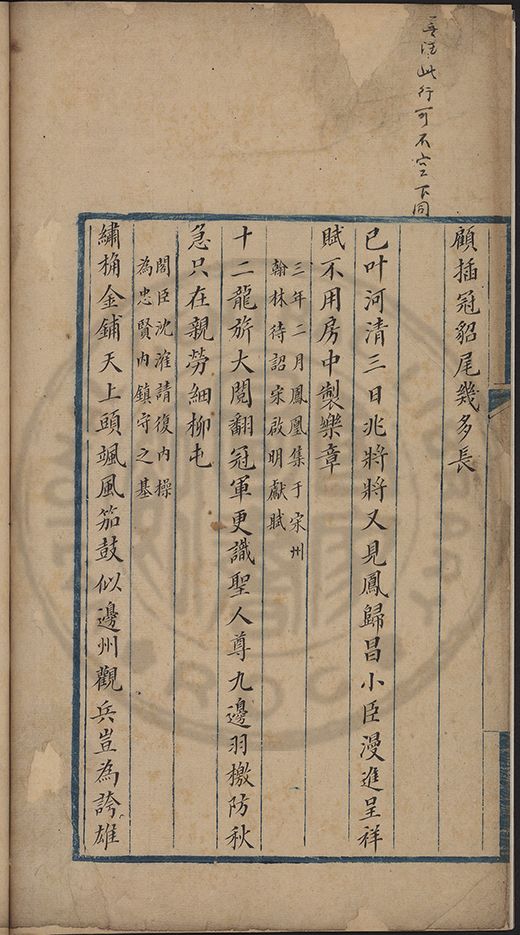 並注此行可不空下同
顧插冠貂尾幾多長
已叶河清三日兆將將又見鳳歸昌小臣漫進呈祥
賦不用房中製樂章
三年二月鳳凰集于宋州
翰林待詔宋啟明獻賦
十二龍旂大閱翻冠軍更識聖人尊九邊羽檄防秋
急只在親勞細柳屯
閣臣沈㴶請復內操
為忠賢內鎮守之基
繡桷金鋪天上頭颯風笳鼓似邊州觀兵豈為誇雄